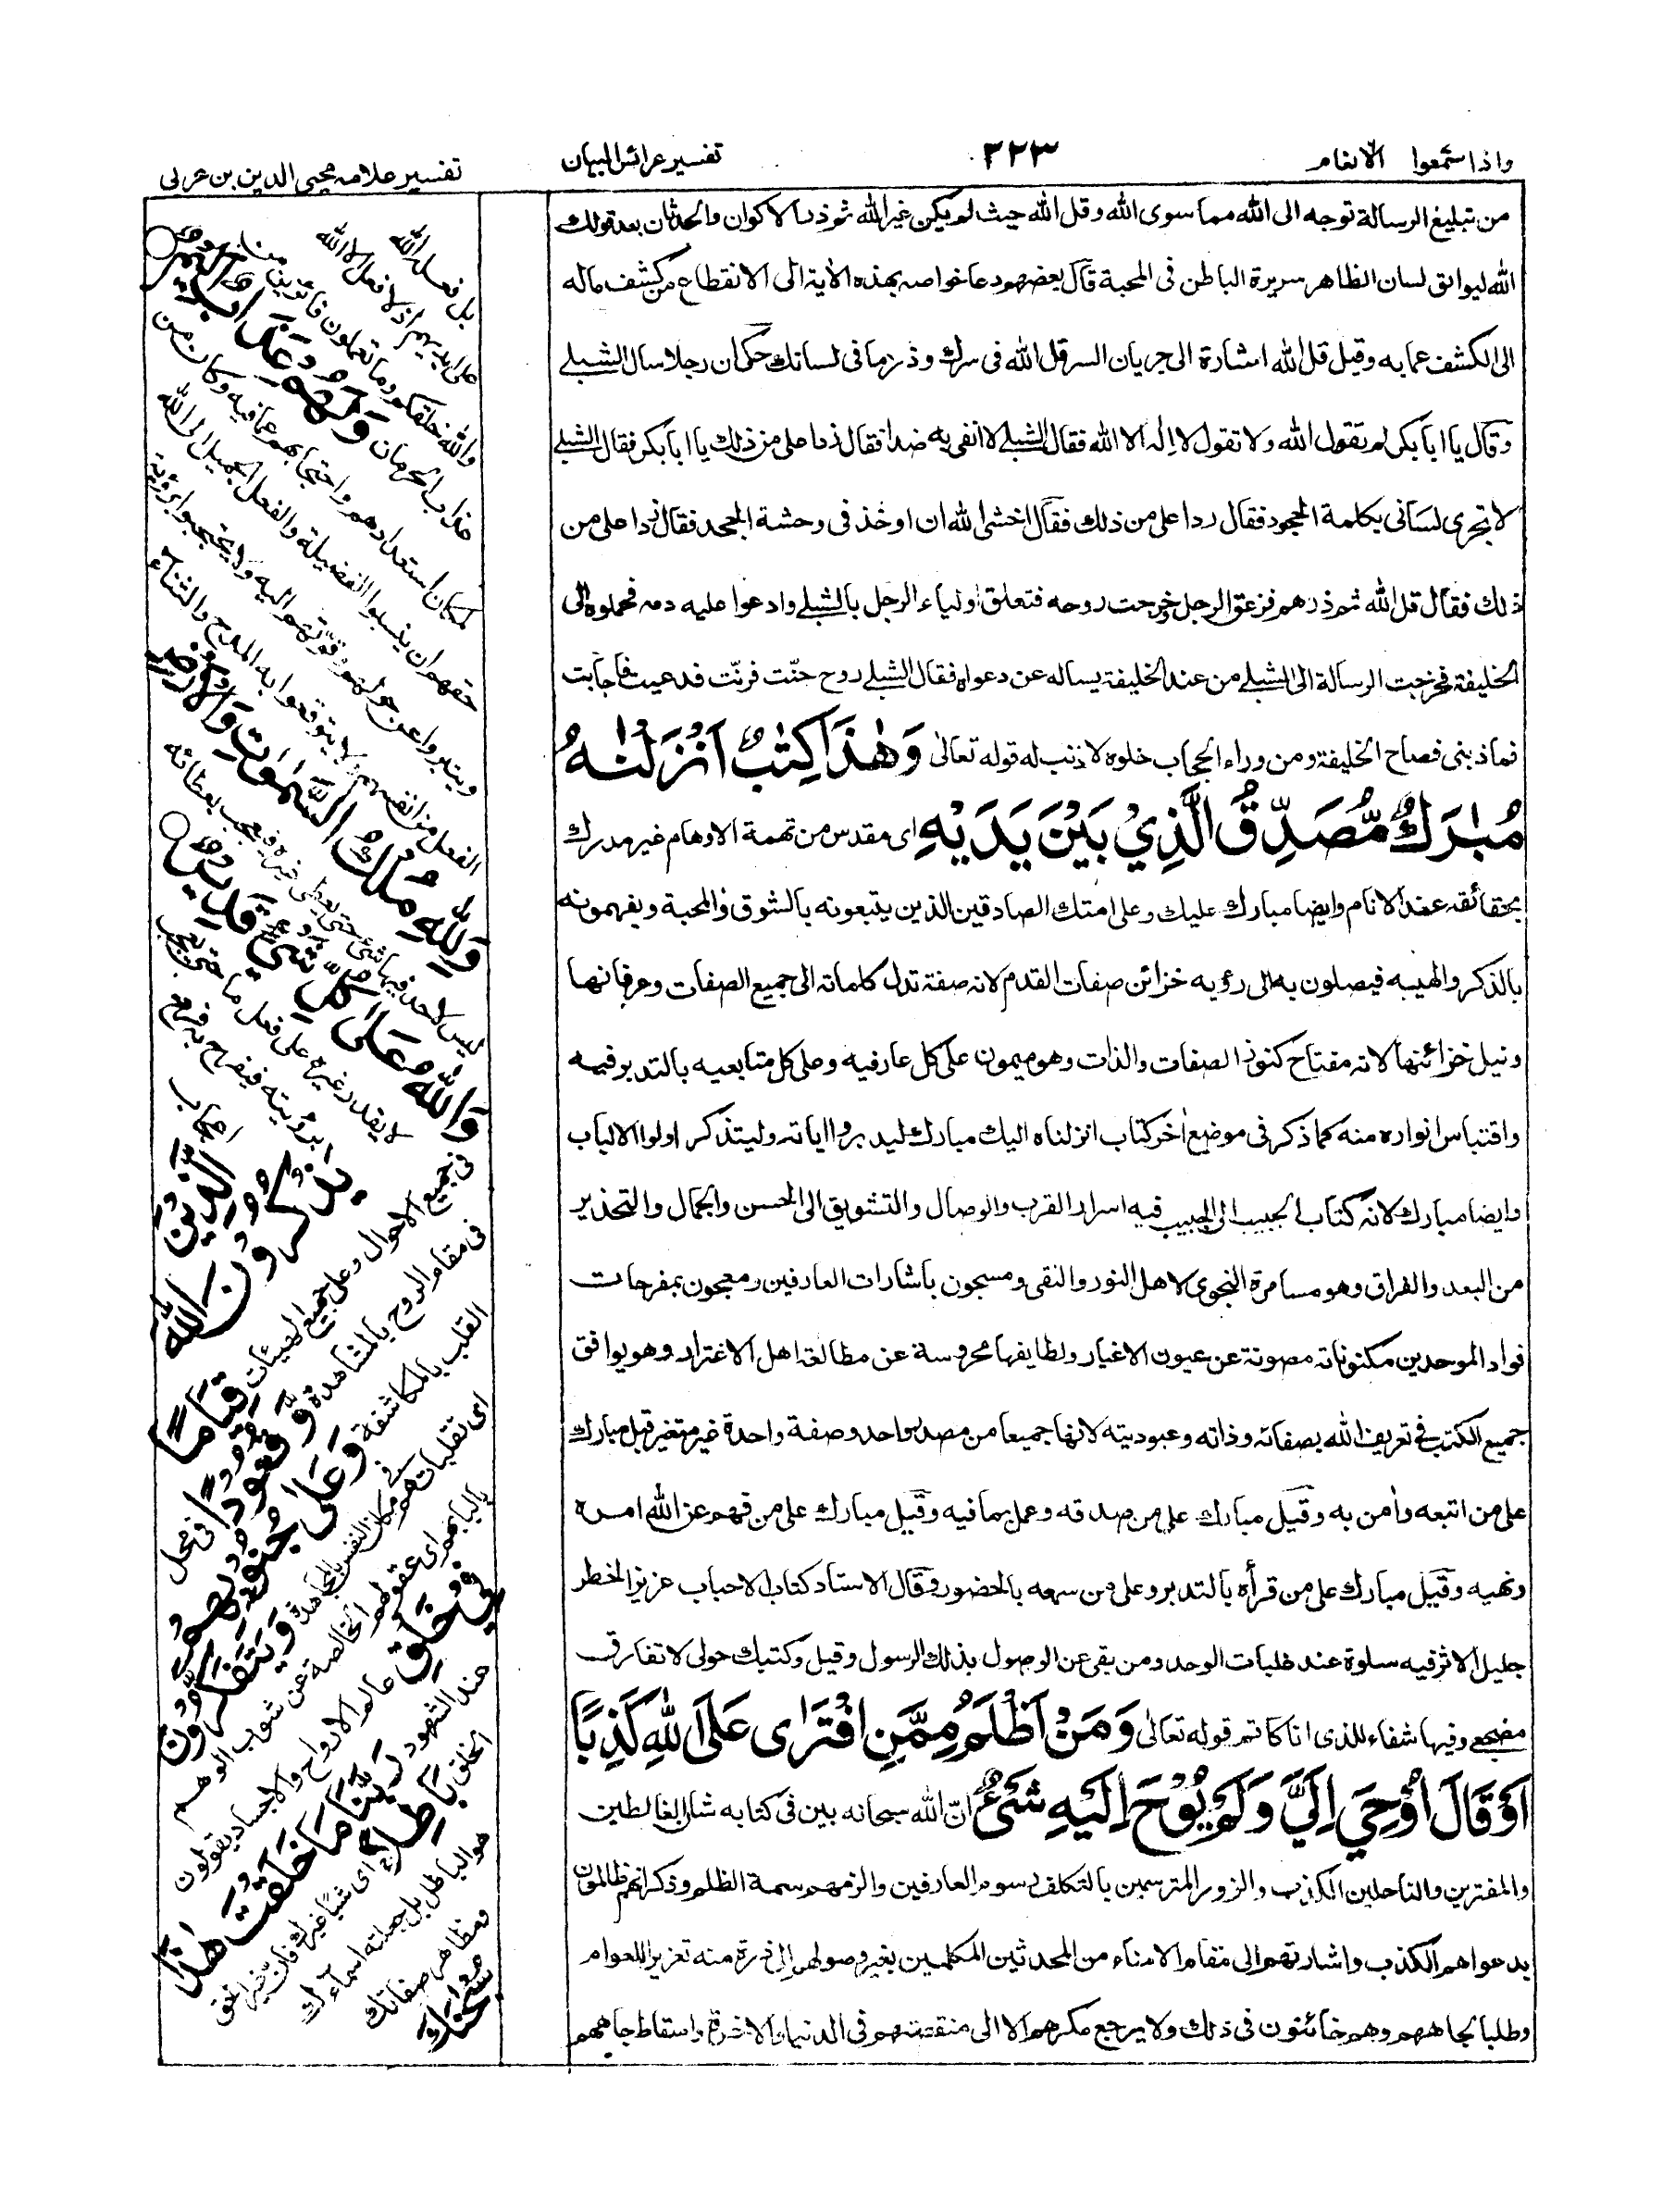 واذا سمعوا الانعام ٣٢٣ تفسير عرائس البيان تفسير علامه محيى الدين بن عربى
من تبليغ الرسالة توجه الى الله مما سوى الله وقل الله حيث لم يكن غير الله ثم ذر الاكوان والحدثان بعد قولك
الله ليوافق لسان الظاهر سريرة الباطن فى المحبة قال بعضهم دعا خواصه بهذه الاية الى الانقطاع من كشف ماله
الى الكشف عما به وقيل قل الله اشارة الى جريان السر قل الله فى سرك وذرهما فى لسانك حكى ان رجلا سال الشبلے
وقال يا ابا بكر لم تقول الله ولا تقول لا اله الا الله فقال الشبلے لا انفى به ضدا فقال زدا على من ذلك يا ابا بكر فقال الشبلے
لا تجرى لسانى بكلمة الجحود فقال زدا على من ذلك فقال اخشى الله ان اوخذ فى وحشة الجحد فقال زدا على من
ذلك فقال قل الله ثم ذرهم فزعق الرجل وخرجت روحه فتعلق اولياء الرجل بالشبلے وادعوا عليه دمه فحملوه الى
الخليفة فخرجت الرسالة الى الشبلے من عند الخليفة يساله عن دعواه فقال الشبلے روح حنّت فرنّت فدعيت فاجابت
فماذ بنى فصاح الخليفة ومن وراء الحجاب خلوه لا ذنب له قوله تعالى وَهٰذَا كِتٰبٌ اَنْزَلْنٰهُ
مُبٰرَكٌ مُّصَدِّقُ الَّذِيْ بَيْنَ يَدَيْهِ اى مقدس من تهمة الاوهام غير مدرك
بحقائقه عند الانام وايضا مبارك عليك وعلى امتك الصادقين الذين يتبعونه بالشوق والمحبة ويفهمونه
بالذكر والهيبه فيصلون به الى رءيه خزائن صفات القدم لانه صفة تدل كلماته الى جميع الصفات وعرفانها
ونيل خزائنها لانه مفتاح كنوز الصفات والذات وهو ميمون على كل عارفيه وعلى كل متابعيه بالتدبر فيه
واقتباس انواره منه كما ذكر فى موضع اخر كتاب انزلناه اليك مبارك ليدبروا اياته وليتذكر اولوا الالباب
وايضا مبارك لانه كتاب الحبيب الى الحبيب فيه اسرار القرب والوصال والتشويق الى الحسن والجمال والتحذير
من البعد والفراق وهو مسامرة النجوى لاهل النور والنقى ومسجون باشارات العارفين ومعجون بمفرحات
فواد الموحدين مكنوناته مصونة عن عيون الاغيار ولطايفها محروسة عن مطالعة اهل الاغترار وهو يوافق
جميع الكتب فى تعريف الله بصفاته وذاته وعبوديته لانها جميعا من مصدر واحد وصفة واحدة غير متغير قيل مبارك
على من اتبعه وامن به وقيل مبارك على من صدقه وعمل بما فيه وقيل مبارك على من فهم عن الله امره
ونهيه وقيل مبارك على من قرأه بالتدبر وعلى من سمعه بالحضور وقال الاستاد كتاب الاحباب عزيز الخطر
جليل الاثر فيه سلوة عند غلبات الوجد ومن بقى عن الوصول بذلك الرسول وقيل وكتبك حولى لا تفارق
مضجعے وفيها شفاء للذى انا كاتم قوله تعالى وَمَنْ اَظْلَمُ مِمَّنِ افْتَرٰى عَلَى اللهِ كَذِبًا
اَوْ قَالَ اُوْحِيَ اِلَيَّ وَلَمْ يُوْحَ اِلَيْهِ شَيْءٌ انّ الله سبحانه بين فى كتابه شان الغالطين
والمفترين والناحلين الكذب والزور المترسمين بالتكلف رسوم العارفين والزمهم سمة الظلم وذكر انهم ظالمون
بدعواهم الكذب واشارتهم الى مقام الامناء من المحدثين المكلمين بغير وصولهم الى ذرة منه تعزيرا للعوام
وطلبا لجاههم وهم خائنون فى ذلك ولا يرجع مكرهم الا الى منقصتهم فى الدنيا والاخرة واسقاط جاههم
بل فعله الله
على ايديهم اذ لا فعل الا لله
والله خلقكم وما تعملون فائزين من
عذاب الحرمان وَلَهُمْ عَذَابٌ اَلِيْمٌ
لمكان استعدادهم واحتجابهم عما فيه وكان من
حقهم ان ينسبوا الفضيلة والفعل الجميل الى الله
ويتبروا عن حولهم وقوتهم اليه ولا يحتجبوا برؤية
الفعل من انفسهم ولا يتوقعوا به المدح والثناء
وَلِلّٰهِ مُلْكُ السَّمٰوٰتِ وَالْاَرْضِ
ليس لاحد فيها شئ حتى يعطى غيره فيعجب بعطائه
وَاللّٰهُ عَلٰى كُلِّ شَيْءٍ قَدِيْرٌ
لا يقدر غيره على فعل ما حتى يعجب
برؤيته فيفرح به فرح
اعجاب
الَّذِيْنَ
يَذْكُرُوْنَ اللّٰهَ
فى جميع الاحوال وعلى جميع الهيئات قِيَامًا
فى مقام الروح بالمشاهدة وَّقُعُوْدًا فى محل
القلب بالمكاشفة وَعَلٰى جُنُوْبِهِمْ
اى تقلباتهم فى مكان النفس بالمجاهدة وَيَتَفَكَّرُوْنَ
بالبابهم اى عقولهم الخالصة عن شوب الوهم
فِيْ خَلْقِ عالم الارواح والاجساد يقولون
عند الشهود رَبَّنَا مَا خَلَقْتَ هٰذَا
الخلق بَاطِلًا اى شيئا غيرك فان غير الحق
هو الباطل بل جعلته اسماءك
ومظاهر صفاتك
سُبْحٰنَكَ